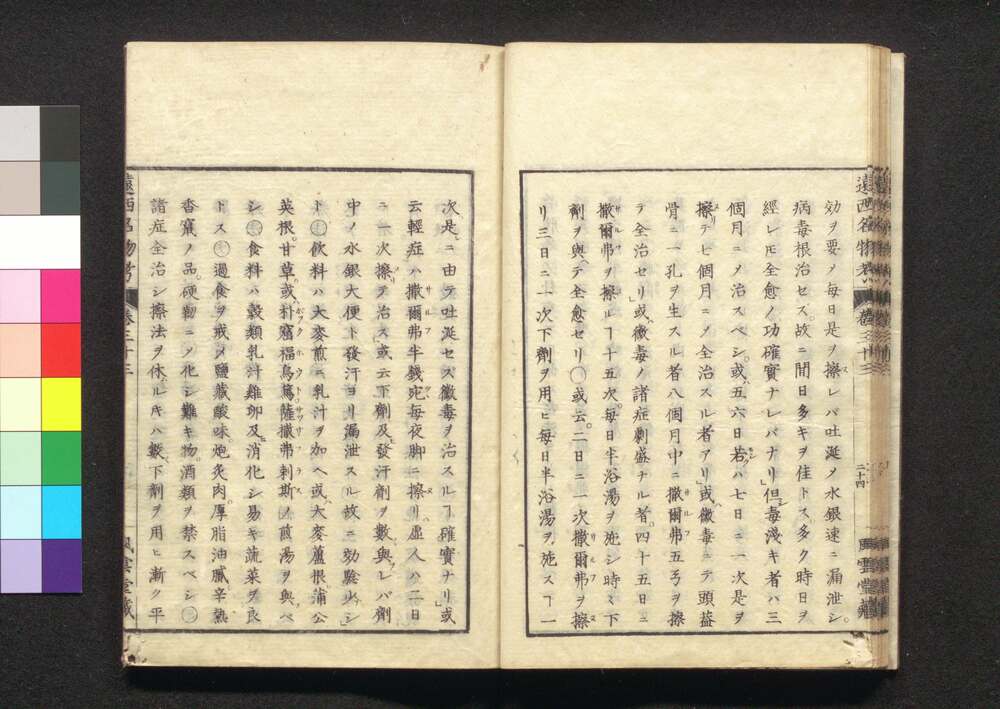 効ヲ要ノ毎日是ヲ擦レバ吐涎ノ水銀速ニ漏泄シ。
病毒根治セズ。故ニ間日多キヲ佳トス多ク時日ヲ
經レモ全愈ノ功確實ナレバナリ」但毒淺キ者ハ三
個月ニノ治スベシ。或五六日若ハ七日ニ一次是ヲ
擦テ七個月ニノ全治スル者アリ」或黴毒ニテ頭葢
骨ニ一孔ヲ生スル者八個月中ニ撒爾弗五弓ヲ擦
テ全治セリ」或黴毒ノ諸症劇盛ナル者。四十五日ニ
撒爾弗ヲ擦ルヿ十五次。毎日半浴湯ヲ施シ時々下
劑ヲ與テ全愈セリ○或云。二日ニ一次撒爾弗ヲ擦
リ三日ニ一次下劑ヲ用ヒ毎日半浴湯ヲ施スヿ一
遠西名物考 卷三十三 二十四 風雲堂藏
次是ニ由テ吐涎セズ黴毒ヲ治スルヿ確實ナリ」或
云輕症ハ撒爾弗半錢宛毎夜脚ニ擦リ虚人ハ二日
ニ一次擦テ治ス」或云下劑及發汗劑ヲ數與レバ劑
中ノ水銀大便ト發汗ヨリ漏泄スル故ニ効驗少シ」
ト○飲料ハ大麥煎ニ乳汁ヲ加ヘ或大麥蘆根蒲公
英根。甘草。或朴屈福烏篤薩撒弗剌斯ノ煎湯ヲ與ベ
シ○食料ハ穀類乳汁雞卵及消化シ易キ蔬菜ヲ良
トス○過食ヲ戒メ鹽藏酸味炮炙肉。厚脂油膩辛熱
香竄ノ品。硬韌ニノ化シ難キ物。酒類ヲ禁スベシ○
諸症全治シ擦法ヲ休ルキハ數下劑ヲ用ヒ漸ク平
遠西名物考 卷三十三 風雲堂藏